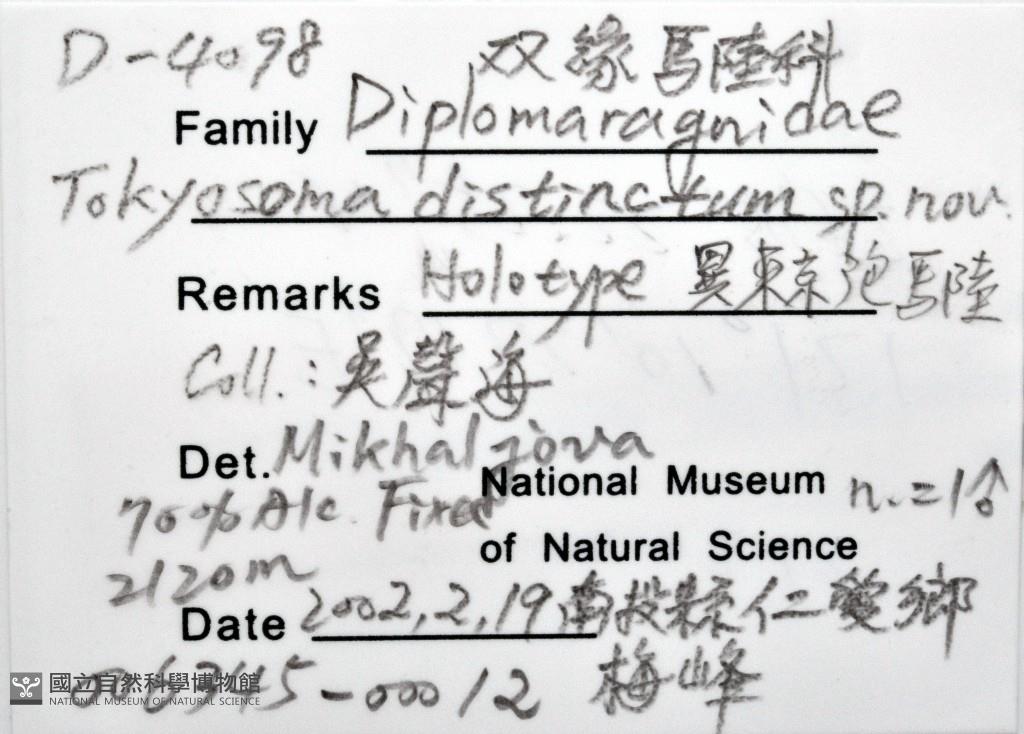 D-4098 双緣馬陸科
Family Diplomaragnidae
Tokyosoma distinctum sp. nov.
Remarks Holotype 異東京泡馬陸
Coll.: 吳聲海
Det. Mikhaljova
National Museum n.=1♂
70% Alc. Fixed
of Natural Science
2120m
Date 2002,2,19 南投縣仁愛鄉
梅峰
006345-00012
國立自然科學博物館
NATIONAL MUSEUM OF NATURAL SCIENCE